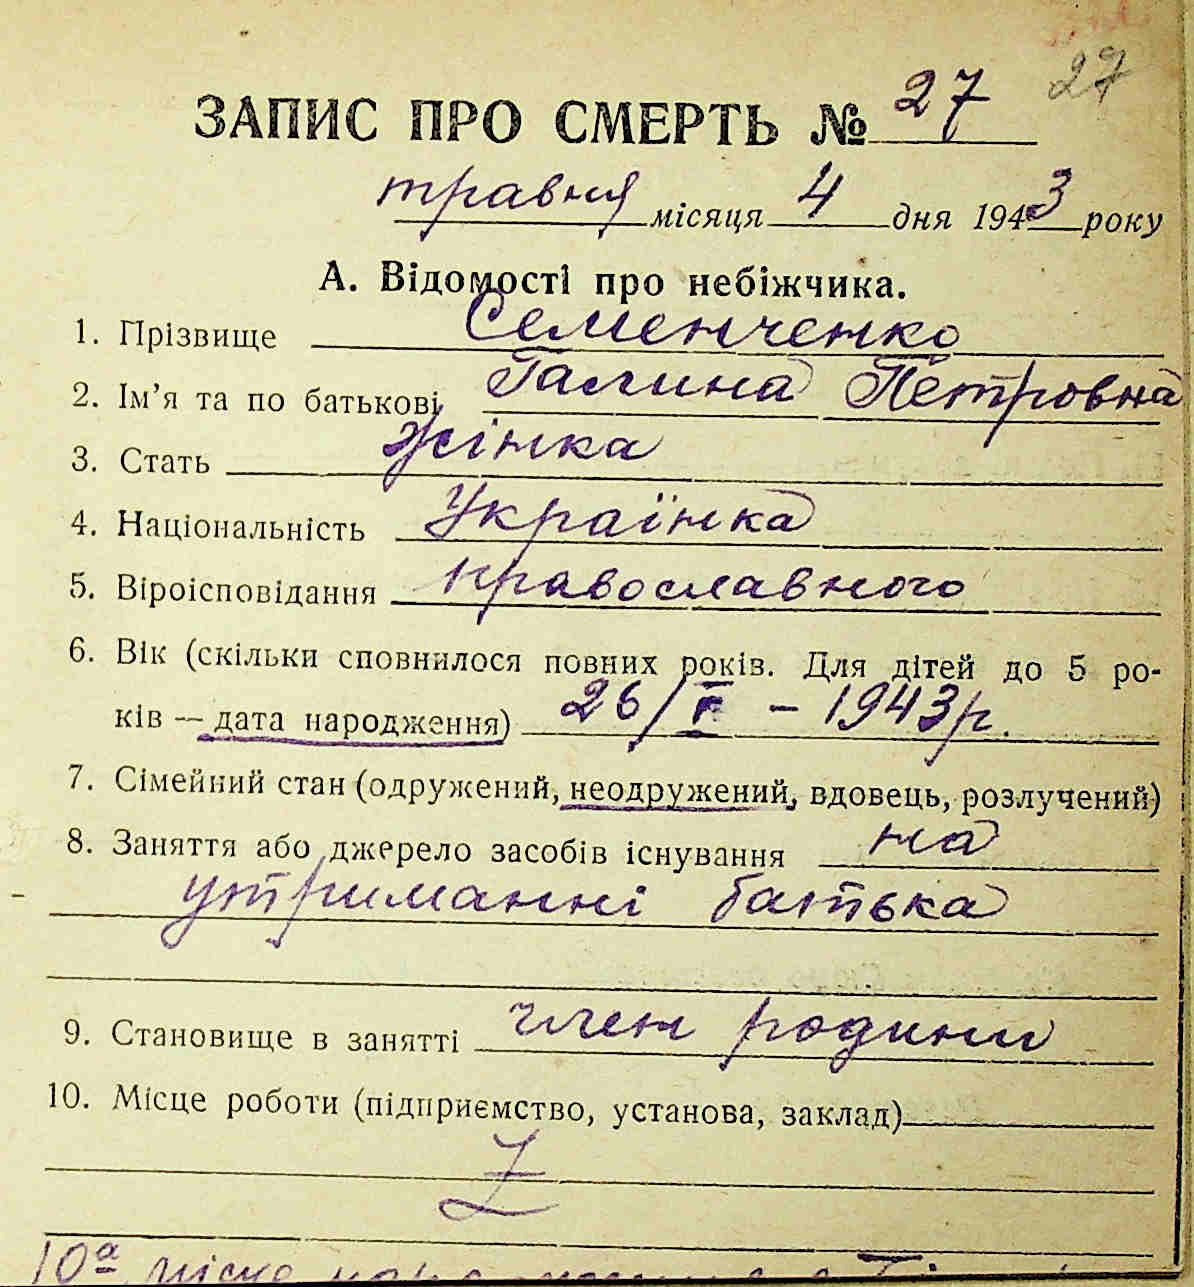 27
ЗАПИС ПРО СМЕРТЬ № 27
травня місяця 4 дня 1943 року
А. Відомості про небіжчика.
1. Прізвище Семенченко
2. Ім'я та по батькові Галина Петровна
3. Стать жінка
4. Національність Українка
5. Віроісповідання православного
6. Вік (скільки сповнилося повних років. Для дітей до 5 ро-
ків — дата народження) 26/ - 1943 р.
7. Сімейний стан (одружений, неодружений, вдовець, розлучений)
8. Заняття або джерело засобів існування на
утриманні батька
9. Становище в занятті член родини
10. Місце роботи (підприємство, установа, заклад)
Z
10а місце